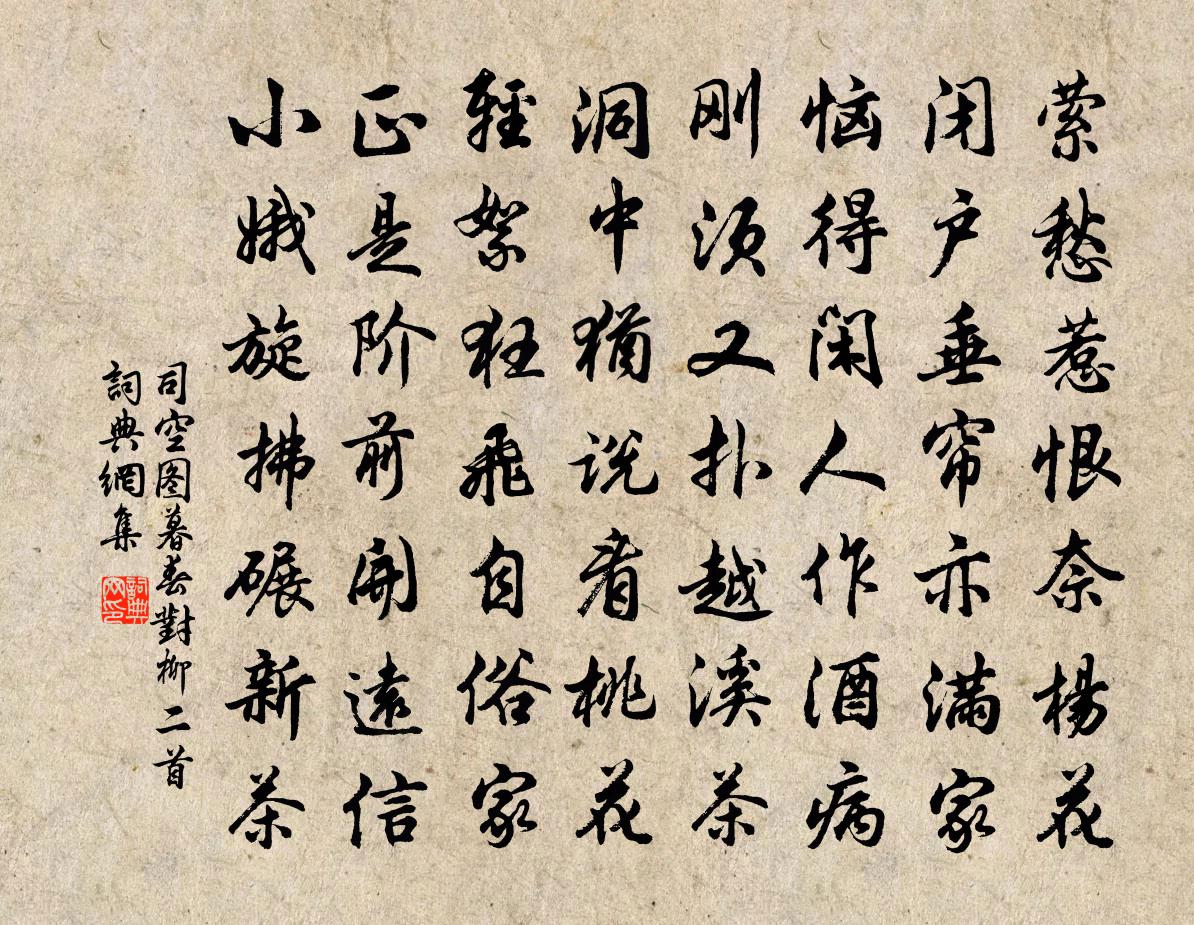 萦愁惹恨奈楊花
闭户垂帘亦满家
恼得闲人作酒病
刚须又扑越溪茶
洞中猶说看桃花
輕絮狂飛自俗家
正是阶前開遠信
小娥旋拂碾新茶
司空图暮春對柳二首
詞典網集
詞典网印